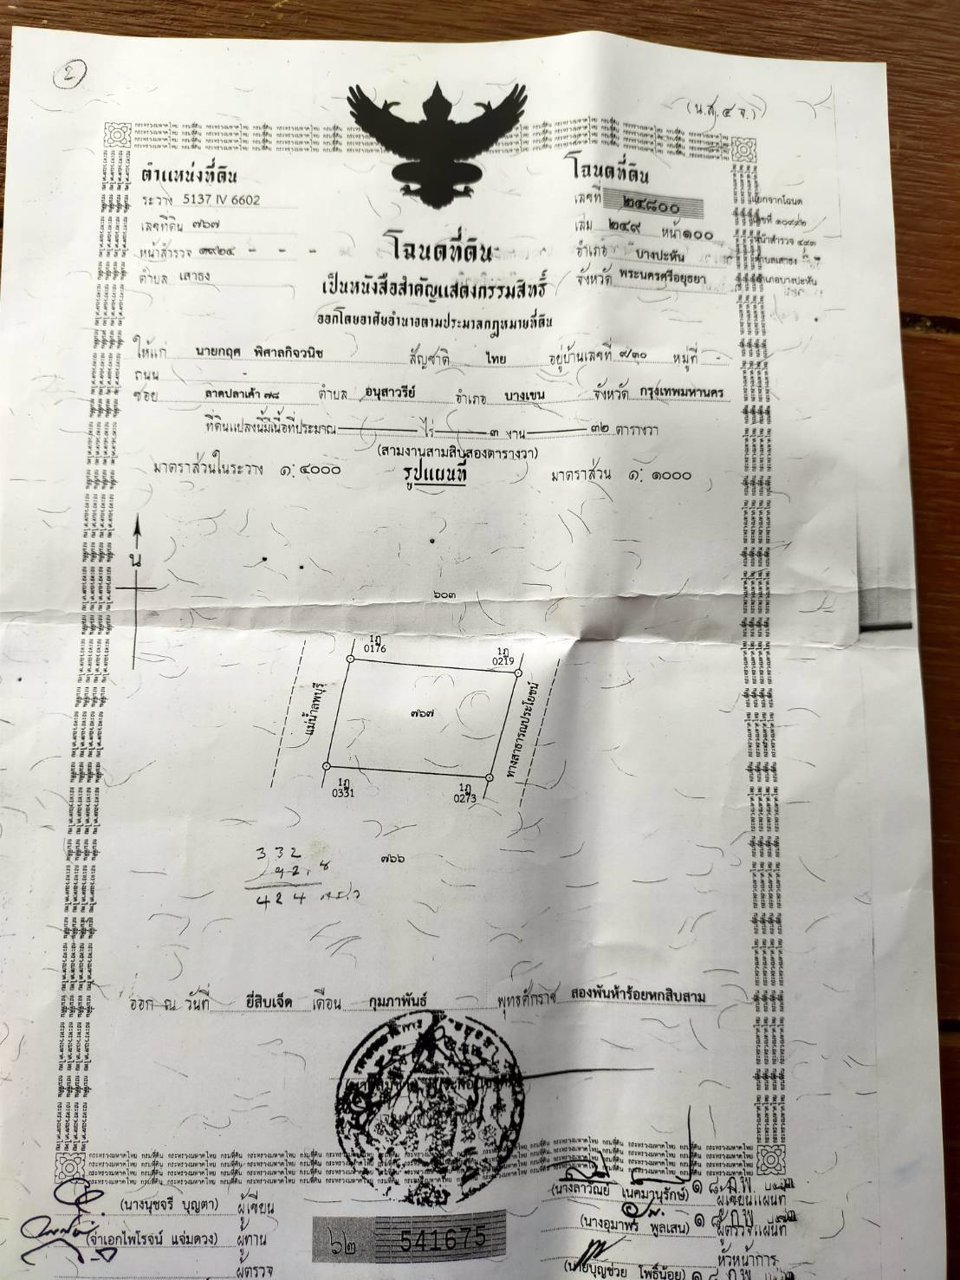 2
(น.ส. ๔ จ.)
ตำแหน่งที่ดิน
ระวาง 5137 IV 6602
เลขที่ดิน ๗๖๗
หน้าสำรวจ ๓๙๒๔
ตำบล เสาธง
โฉนดที่ดิน
เลขที่ ๒๔๘๐๐
เล่ม ๒๔๙ หน้า ๑๐๐
อำเภอ บางปะหัน
จังหวัด พระนครศรีอยุธยา
แยกจากโฉนด
หน้าสำรวจ
ตำบลเสาธง
อำเภอบางปะหัน
โฉนดที่ดิน
เป็นหนังสือสำคัญแสดงกรรมสิทธิ์
ออกโดยอาศัยอำนาจตามประมวลกฎหมายที่ดิน
ให้แก่ นายกฤศ พิศาลกิจวนิช สัญชาติ ไทย อยู่บ้านเลขที่ ๙/๓๐ หมู่ที่ -
ถนน
ซอย ลาดปลาเค้า ๗๘ ตำบล อนุสาวรีย์ อำเภอ บางเขน จังหวัด กรุงเทพมหานคร
ที่ดินแปลงนี้มีเนื้อที่ประมาณ - ไร่ ๓ งาน ๓๒ ตารางวา
(สามงานสามสิบสองตารางวา)
มาตราส่วนในระวาง ๑: ๔๐๐๐ รูปแผนที่ มาตราส่วน ๑: ๑๐๐๐
น
๖๐๓
1ฎ 0176
1ฎ 0219
แม่น้ำลพบุรี
๗๖๗
ทางสาธารณประโยชน์
1ฎ 0331
1ฎ 0273
๗๖๖
332
92.8
424
ออก ณ วันที่ ยี่สิบเจ็ด เดือน กุมภาพันธ์ พุทธศักราช สองพันห้าร้อยหกสิบสาม
(นางนุชจรี บุญตา) ผู้เขียน
(จ่าเอกไพโรจน์ แจ่มดวง) ผู้ทาน
ผู้ตรวจ
๖๒ 541675
(นางลาวัณย์ เนคมานุรักษ์) ๑๘ ก.พ.
ผู้เขียนแผนที่
(นางอุมาพร พูลเสน) ๑๘ ก.พ.
ผู้ตรวจแผนที่
(นายบุญช่วย โพธิ์น้อย) ๑๘ ก.พ.
หัวหน้าการ